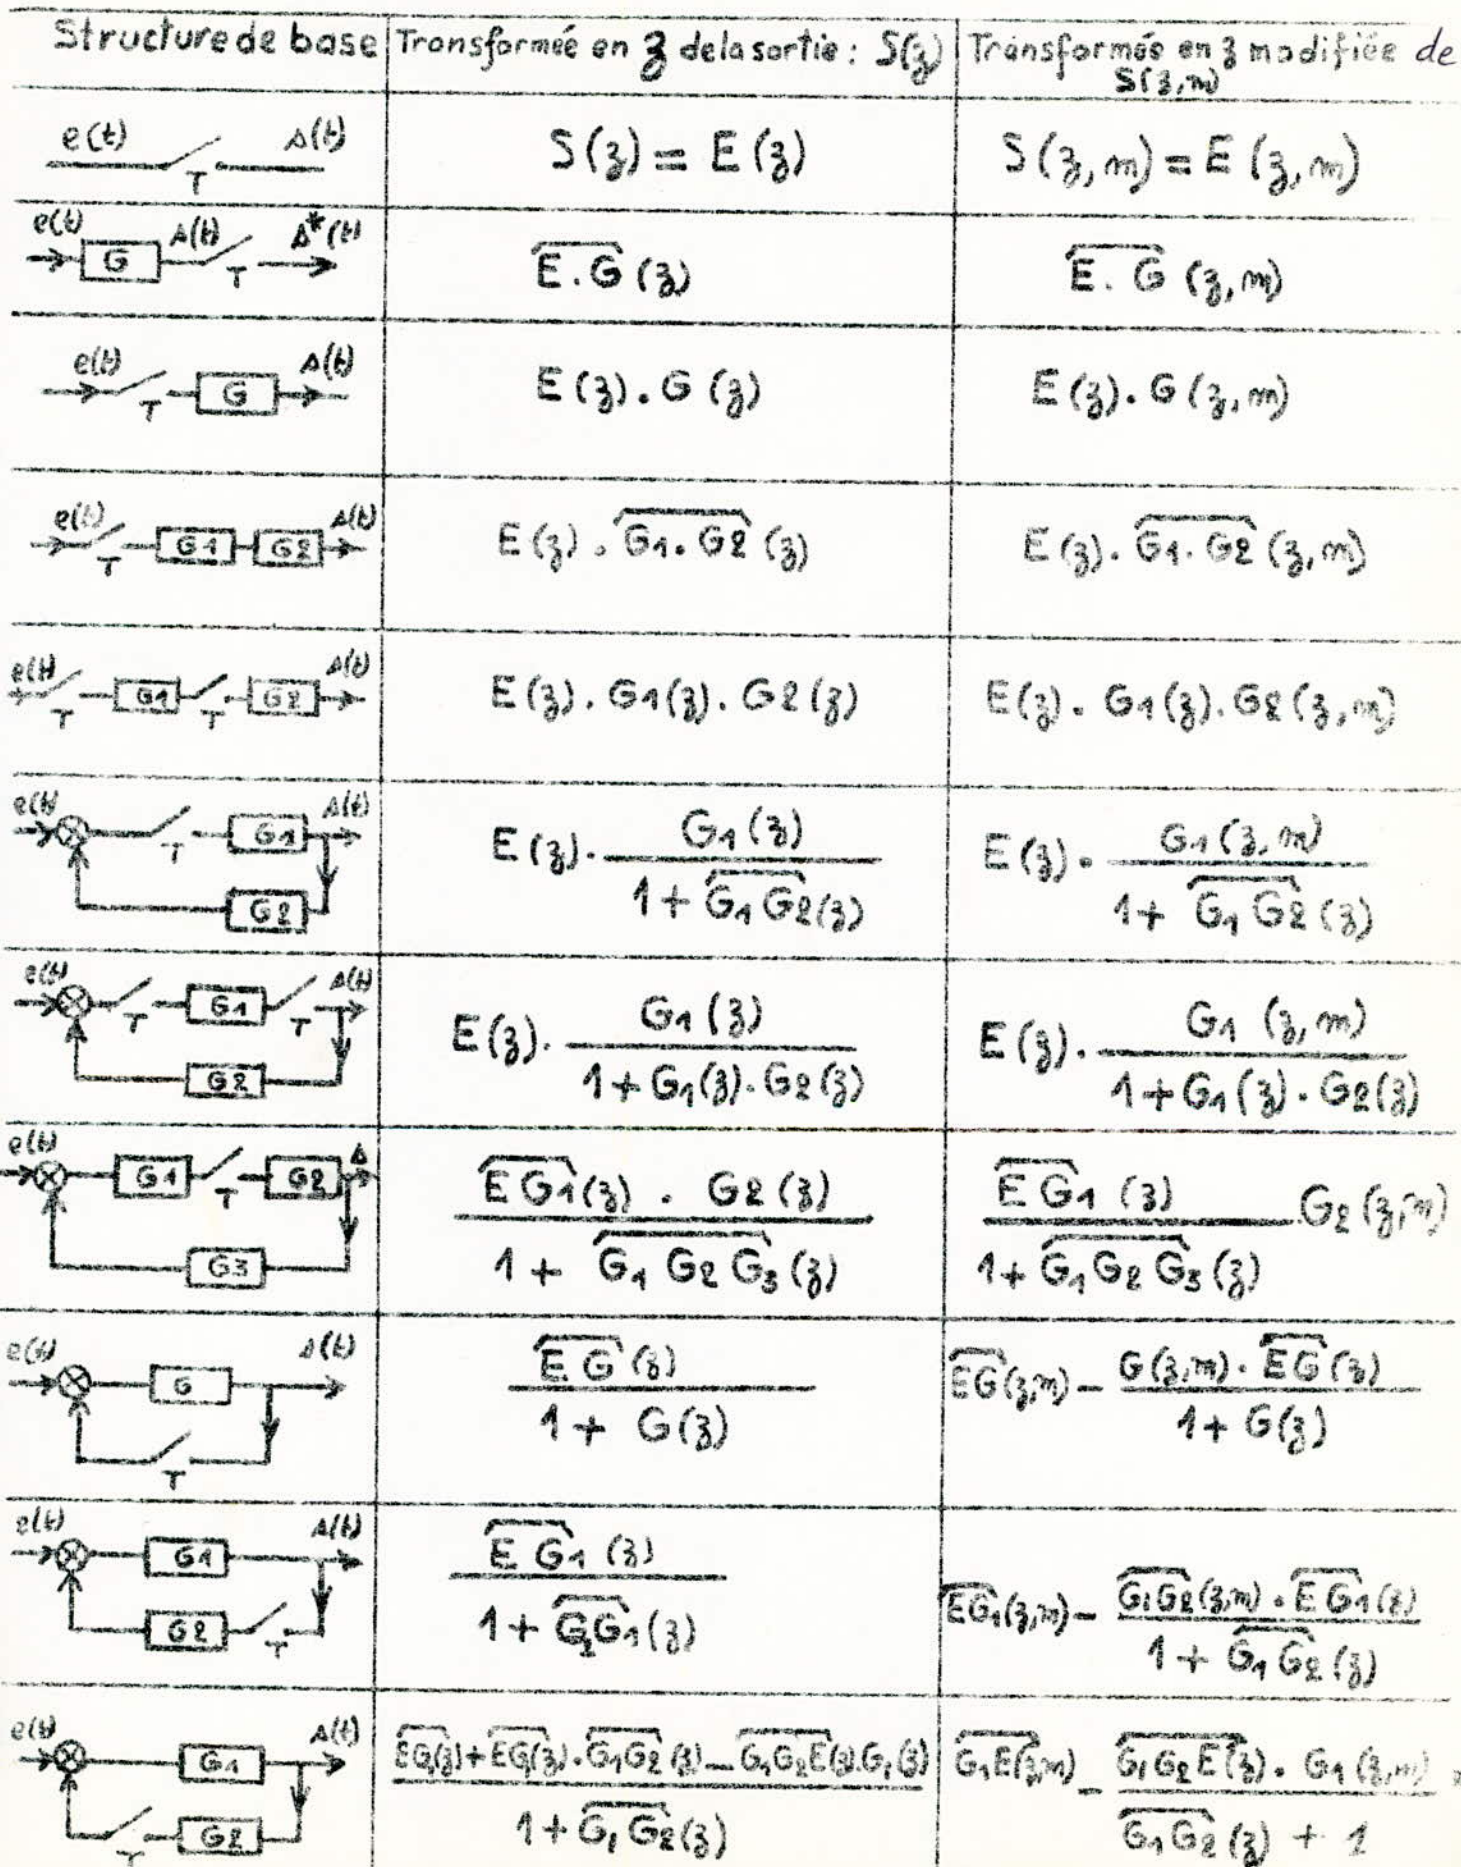 Structure de base | Transformée en z de la sortie : S(z) | Transformée en z modifiée de S(z,m)
e(t) T s(t) | S(z) = E(z) | S(z,m) = E(z,m)
e(t) G s(t) T s*(t) | E.G (z) | E.G (z,m)
e(t) T G s(t) | E(z).G(z) | E(z).G(z,m)
e(t) T G1 G2 s(t) | E(z).G1.G2(z) | E(z).G1.G2(z,m)
e(t) T G1 T G2 s(t) | E(z).G1(z).G2(z) | E(z).G1(z).G2(z,m)
e(t) T G1 s(t) G2 | E(z).G1(z) / 1+G1G2(z) | E(z).G1(z,m) / 1+G1G2(z)
e(t) T G1 T s(t) G2 | E(z).G1(z) / 1+G1(z).G2(z) | E(z).G1(z,m) / 1+G1(z).G2(z)
e(t) G1 T G2 s G3 | EG1(z).G2(z) / 1+G1G2G3(z) | EG1(z) / 1+G1G2G3(z) .G2(z,m)
e(t) G s(t) T | EG(z) / 1+G(z) | EG(z,m) - G(z,m).EG(z) / 1+G(z)
e(t) G1 s(t) G2 T | EG1(z) / 1+G2G1(z) | EG1(z,m) - G1G2(z,m).EG1(z) / 1+G1G2(z)
e(t) G1 s(t) T G2 | EG1(z)+EG1(z).G1G2(z)-G1G2E(z).G1(z) / 1+G1G2(z) | G1E(z,m) - G1G2E(z).G1(z,m) / G1G2(z)+1